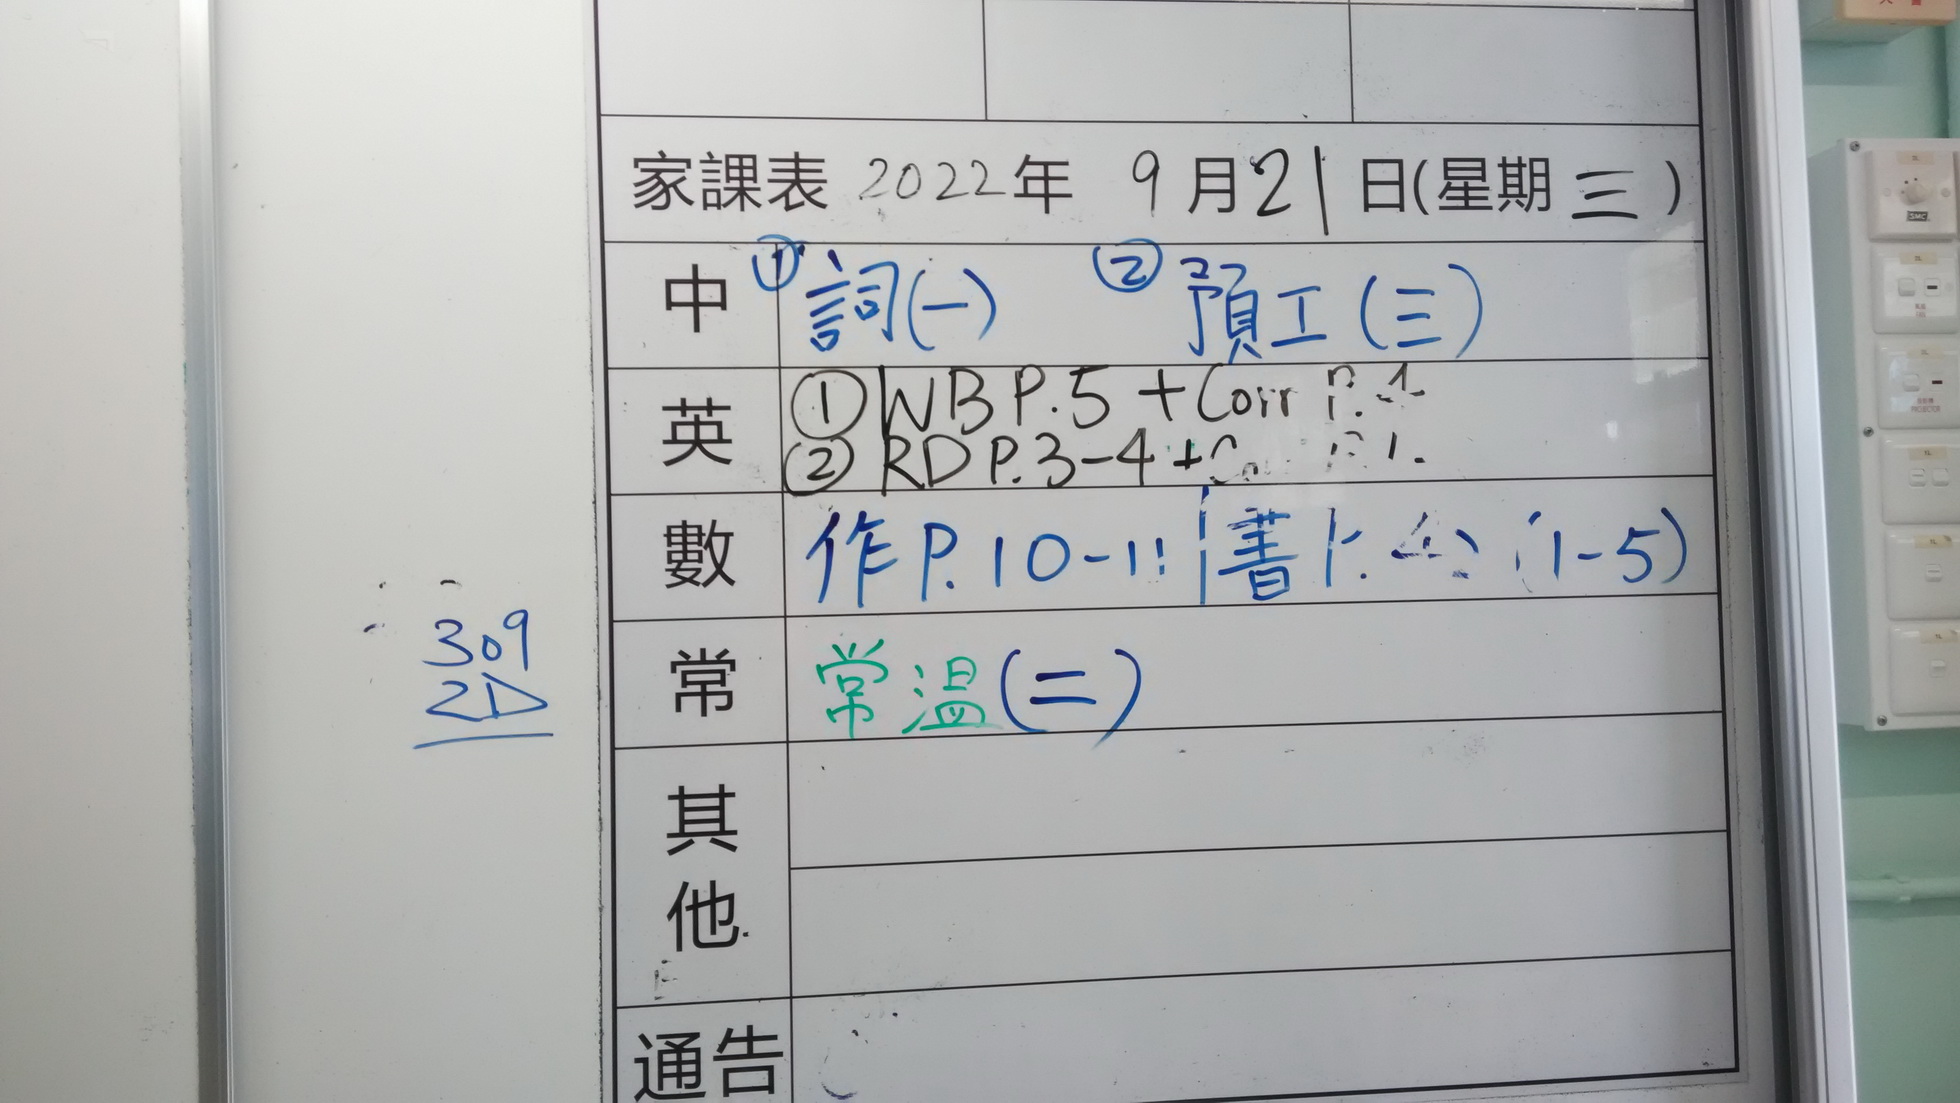 家課表 2022年 9月21日(星期三)
中 ①詞(一) ②預工(三)
英 ①WB P.5 + Corr P.4
②RD P.3-4 +
數 作P.10-11 書 (1-5)
常 常溫(二)
其他
通告
309
2D